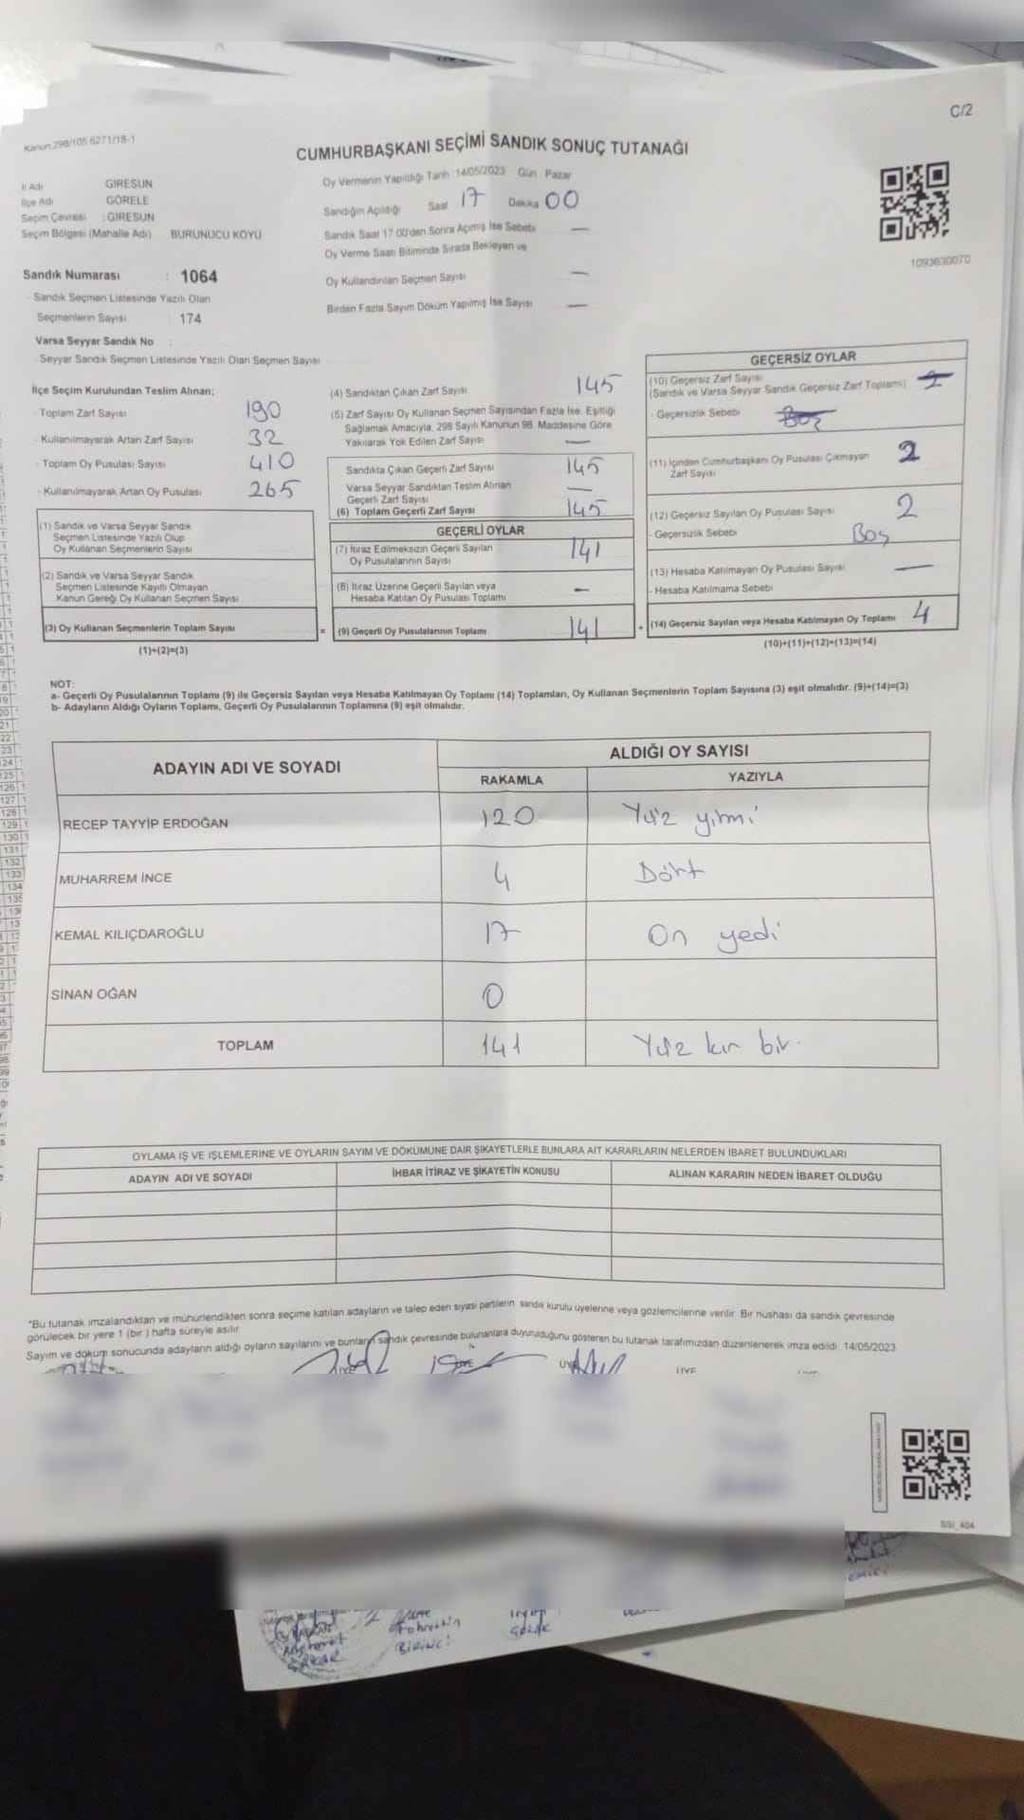 C/2
Kanun 298/105 6271/18-1
CUMHURBAŞKANI SEÇİMİ SANDIK SONUÇ TUTANAĞI
İl Adı GİRESUN
İlçe Adı GÖRELE
Seçim Çevresi : GİRESUN
Seçim Bölgesi (Mahalle Adı) BURUNUCU KÖYÜ
Sandık Numarası : 1064
Sandık Seçmen Listesinde Yazılı Olan
Seçmenlerin Sayısı 174
Varsa Seyyar Sandık No :
Seyyar Sandık Seçmen Listesinde Yazılı Olan Seçmen Sayısı
Oy Vermenin Yapıldığı Tarih 14/05/2023 Gün Pazar
Sandığın Açıldığı Saat 17 Dakika 00
Sandık Saat 17:00'den Sonra Açılmış İse Sebebi —
Oy Verme Saati Bitiminde Sırada Bekleyen ve
Oy Kullandırılan Seçmen Sayısı —
Birden Fazla Sayım Döküm Yapılmış İse Sayısı —
1093630070
İlçe Seçim Kurulundan Teslim Alınan;
- Toplam Zarf Sayısı 190
- Kullanılmayarak Artan Zarf Sayısı 32
- Toplam Oy Pusulası Sayısı 410
- Kullanılmayarak Artan Oy Pusulası 265
(1) Sandık ve Varsa Seyyar Sandık
Seçmen Listesinde Yazılı Olup
Oy Kullanan Seçmenlerin Sayısı
(2) Sandık ve Varsa Seyyar Sandık
Seçmen Listesinde Kayıtlı Olmayan
Kanun Gereği Oy Kullanan Seçmen Sayısı
(3) Oy Kullanan Seçmenlerin Toplam Sayısı
(1)+(2)=(3)
(4) Sandıktan Çıkan Zarf Sayısı 145
(5) Zarf Sayısı Oy Kullanan Seçmen Sayısından Fazla İse, Eşitliği
Sağlamak Amacıyla, 298 Sayılı Kanunun 98. Maddesine Göre
Yakılarak Yok Edilen Zarf Sayısı —
Sandıkta Çıkan Geçerli Zarf Sayısı 145
Varsa Seyyar Sandıktan Teslim Alınan
Geçerli Zarf Sayısı —
(6) Toplam Geçerli Zarf Sayısı 145
GEÇERLİ OYLAR
(7) İtiraz Edilmeksizin Geçerli Sayılan
Oy Pusulalarının Sayısı 141
(8) İtiraz Üzerine Geçerli Sayılan veya
Hesaba Katılan Oy Pusulası Toplamı —
= (9) Geçerli Oy Pusulalarının Toplamı 141
GEÇERSİZ OYLAR
(10) Geçersiz Zarf Sayısı
(Sandık ve Varsa Seyyar Sandık Geçersiz Zarf Toplamı)
- Geçersizlik Sebebi Boş
(11) İçinden Cumhurbaşkanı Oy Pusulası Çıkmayan
Zarf Sayısı 2
(12) Geçersiz Sayılan Oy Pusulası Sayısı 2
- Geçersizlik Sebebi Boş
(13) Hesaba Katılmayan Oy Pusulası Sayısı —
- Hesaba Katılmama Sebebi
+ (14) Geçersiz Sayılan veya Hesaba Katılmayan Oy Toplamı 4
(10)+(11)+(12)+(13)=(14)
NOT:
a- Geçerli Oy Pusulalarının Toplamı (9) ile Geçersiz Sayılan veya Hesaba Katılmayan Oy Toplamı (14) Toplamları, Oy Kullanan Seçmenlerin Toplam Sayısına (3) eşit olmalıdır. (9)+(14)=(3)
b- Adayların Aldığı Oyların Toplamı, Geçerli Oy Pusulalarının Toplamına (9) eşit olmalıdır.
ADAYIN ADI VE SOYADI ALDIĞI OY SAYISI
RAKAMLA YAZIYLA
RECEP TAYYİP ERDOĞAN 120 Yüz yirmi
MUHARREM İNCE 4 Dört
KEMAL KILIÇDAROĞLU 17 On yedi
SİNAN OĞAN 0
TOPLAM 141 Yüz kır bir.
OYLAMA İŞ VE İŞLEMLERİNE VE OYLARIN SAYIM VE DÖKÜMÜNE DAİR ŞİKAYETLERLE BUNLARA AİT KARARLARIN NELERDEN İBARET BULUNDUKLARI
ADAYIN ADI VE SOYADI İHBAR İTİRAZ VE ŞİKAYETİN KONUSU ALINAN KARARIN NEDEN İBARET OLDUĞU
*Bu tutanak imzalandıktan ve mühürlendikten sonra seçime katılan adayların ve talep eden siyasi partilerin sandık kurulu üyelerine veya gözlemcilerine verilir. Bir nüshası da sandık çevresinde
görülecek bir yere 1 (bir) hafta süreyle asılır.
Sayım ve döküm sonucunda adayların aldığı oyların sayılarını ve bunların sandık çevresinde bulunanlara duyurulduğunu gösteren bu tutanak tarafımızdan düzenlenerek imza edildi. 14/05/2023
ÜYE